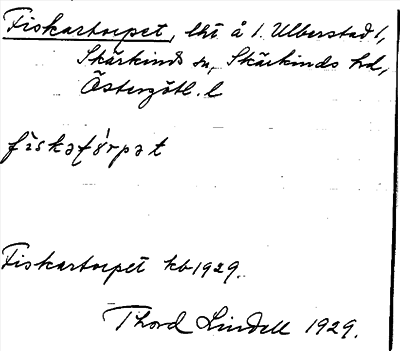 Fiskartorpet, lht å 1. Ulberstad 1,
Skärkinds sn, Skärkinds hd,
Östergötl. l
Fiskartorpet kb 1929.
Thord Lindell 1929.